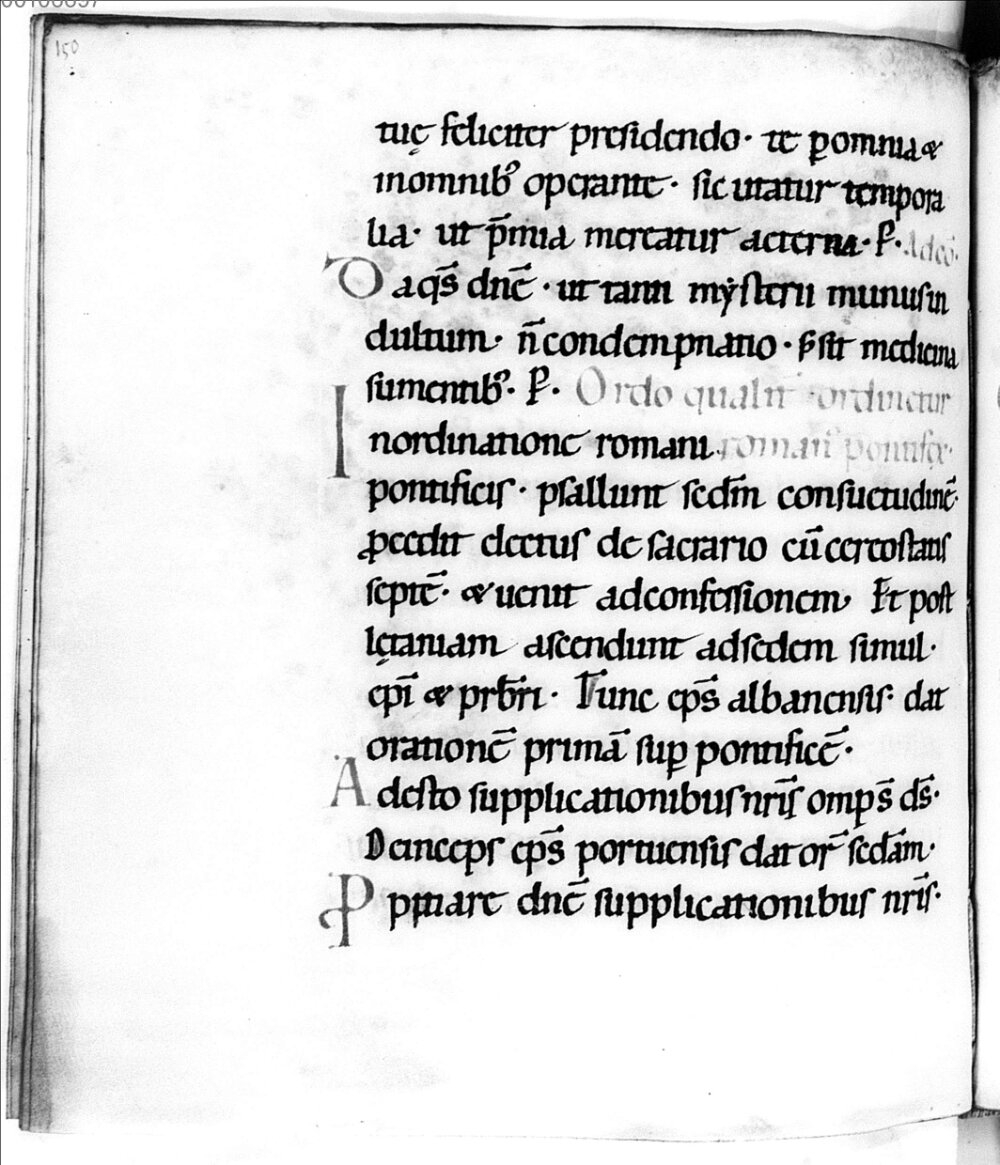 150
tuę feliciter presidendo · te ꝑ omnia &
inomnib; operante · sic utatur tempora
lia · ut p̄mia mereatur aeterna · P̄ · Ad cō.
Da qs̄ dn̄e · ut tanti mẏsterii munus in
dultum · n̄ condempnatio · s; sit medicina
sumentib; · P̄ · Ordo qualit ordinetur
In ordinatione romani roman̄ pontifex.
pontificis · psallunt secdm̄ consuetudinē ·
ꝓcedit electus de sacrario cū cereostatis
septē · & uenit ad confessionem · Et post
lętaniam ascendunt ad sedem simul ·
ep̄i & prb̄ri · Tunc ep̄s albanensis · dat
orationē primā suꝑ pontificē ·
Adesto supplicationibus nrīs omps̄ ds̄ ·
Deinceps ep̄s portuensis dat or̄ secdām ·
Ppitiare dn̄e supplicationibus nrīs ·